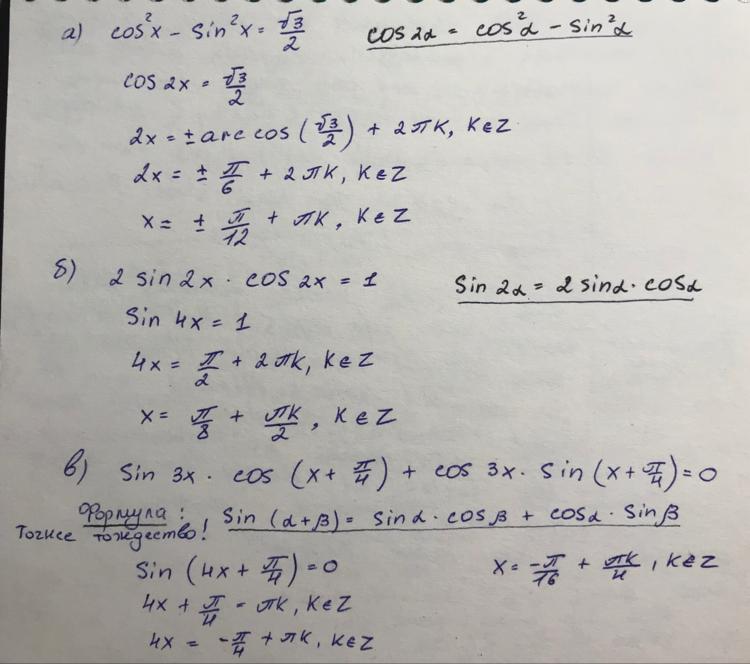 а) cos²x - sin²x = √3/2    cos 2α = cos²α - sin²α
cos 2x = √3/2
2x = ± arccos (√3/2) + 2πk, k∈Z
2x = ± π/6 + 2πk, k∈Z
x = ± π/12 + πk, k∈Z
б) 2 sin 2x · cos 2x = 1    sin 2α = 2 sinα · cosα
sin 4x = 1
4x = π/2 + 2πk, k∈Z
x = π/8 + πk/2, k∈Z
в) sin 3x · cos (x + π/4) + cos 3x · sin (x + π/4) = 0
Формула: sin (α+β) = sinα · cosβ + cosα · sinβ
Точнее тождество!
sin (4x + π/4) = 0    x = -π/16 + πk/4, k∈Z
4x + π/4 = πk, k∈Z
4x = -π/4 + πk, k∈Z